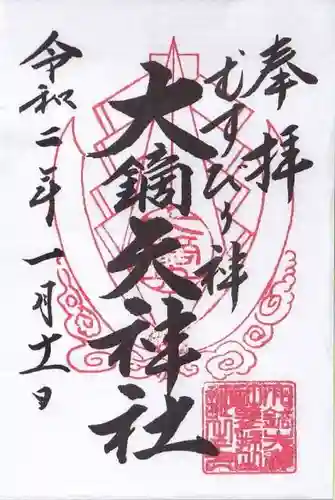 奉拝
むすひの神
大鏑矢神社
令和二年一月十一日